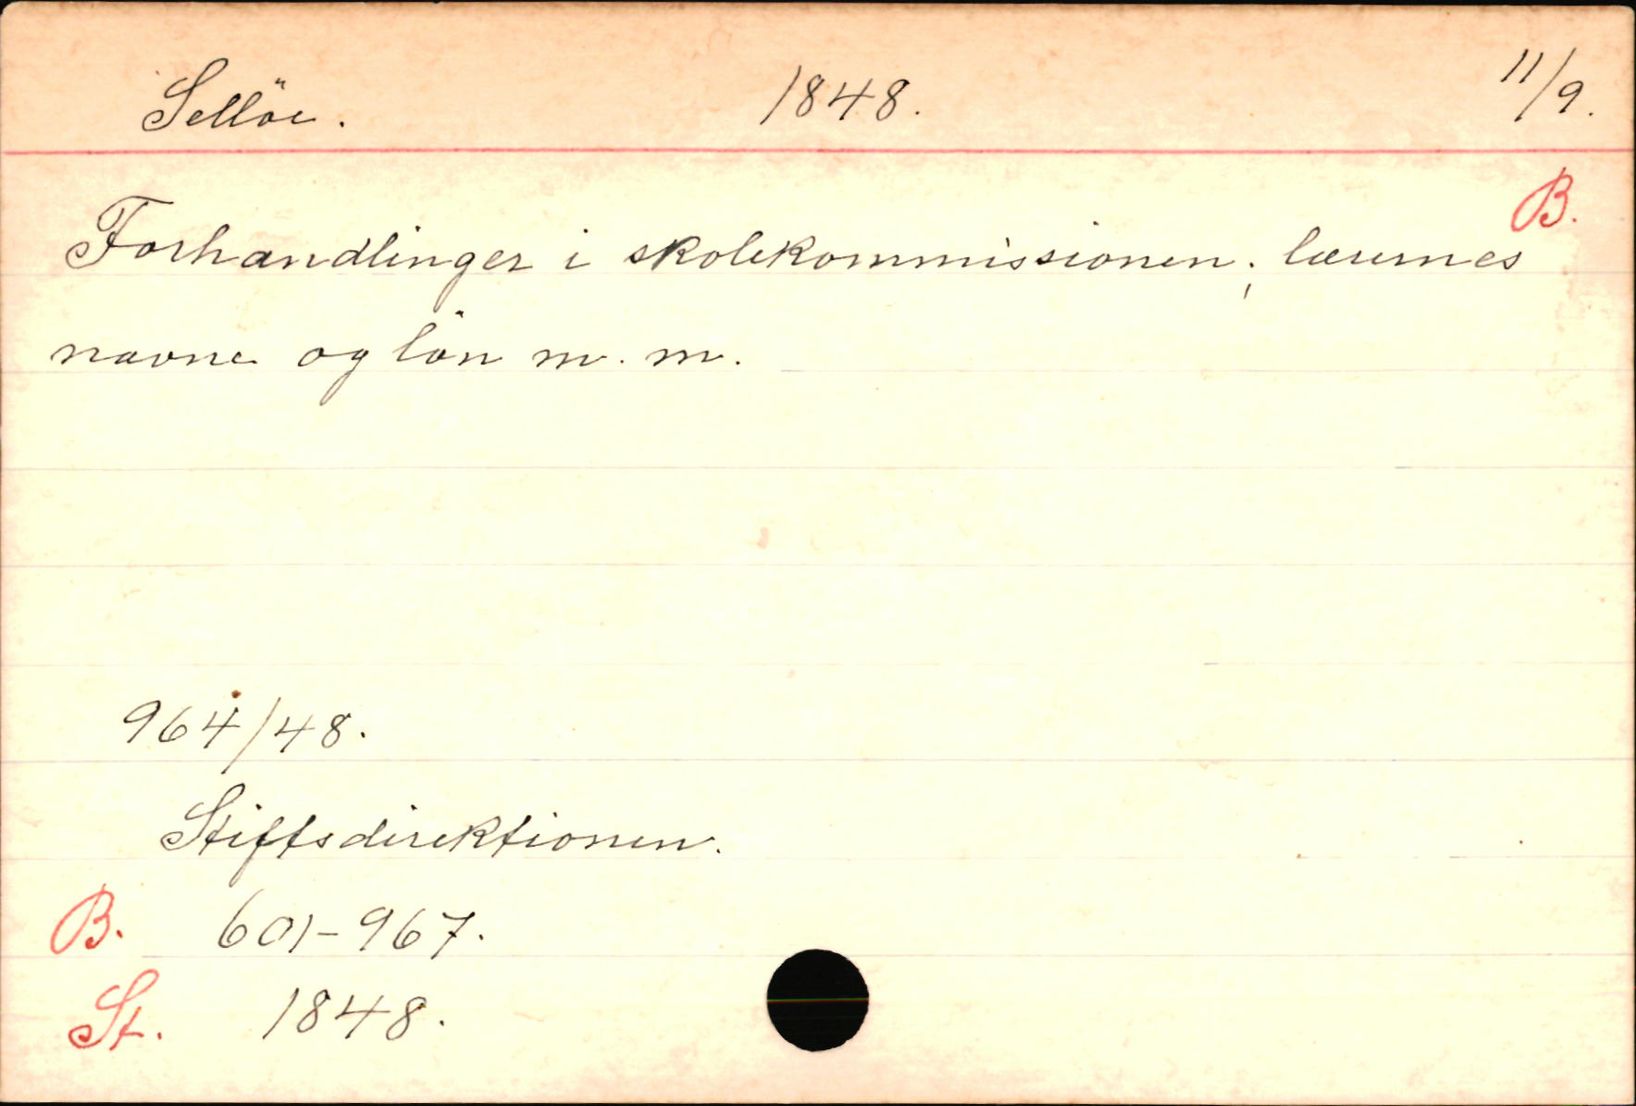 Sellöe. 1848. 11/9.
B.
Forhandlinger i skolekommissionen; lærernes
navne og lön m. m.
964/48.
Stiftsdirektionen.
B. 601-967.
St. 1848.